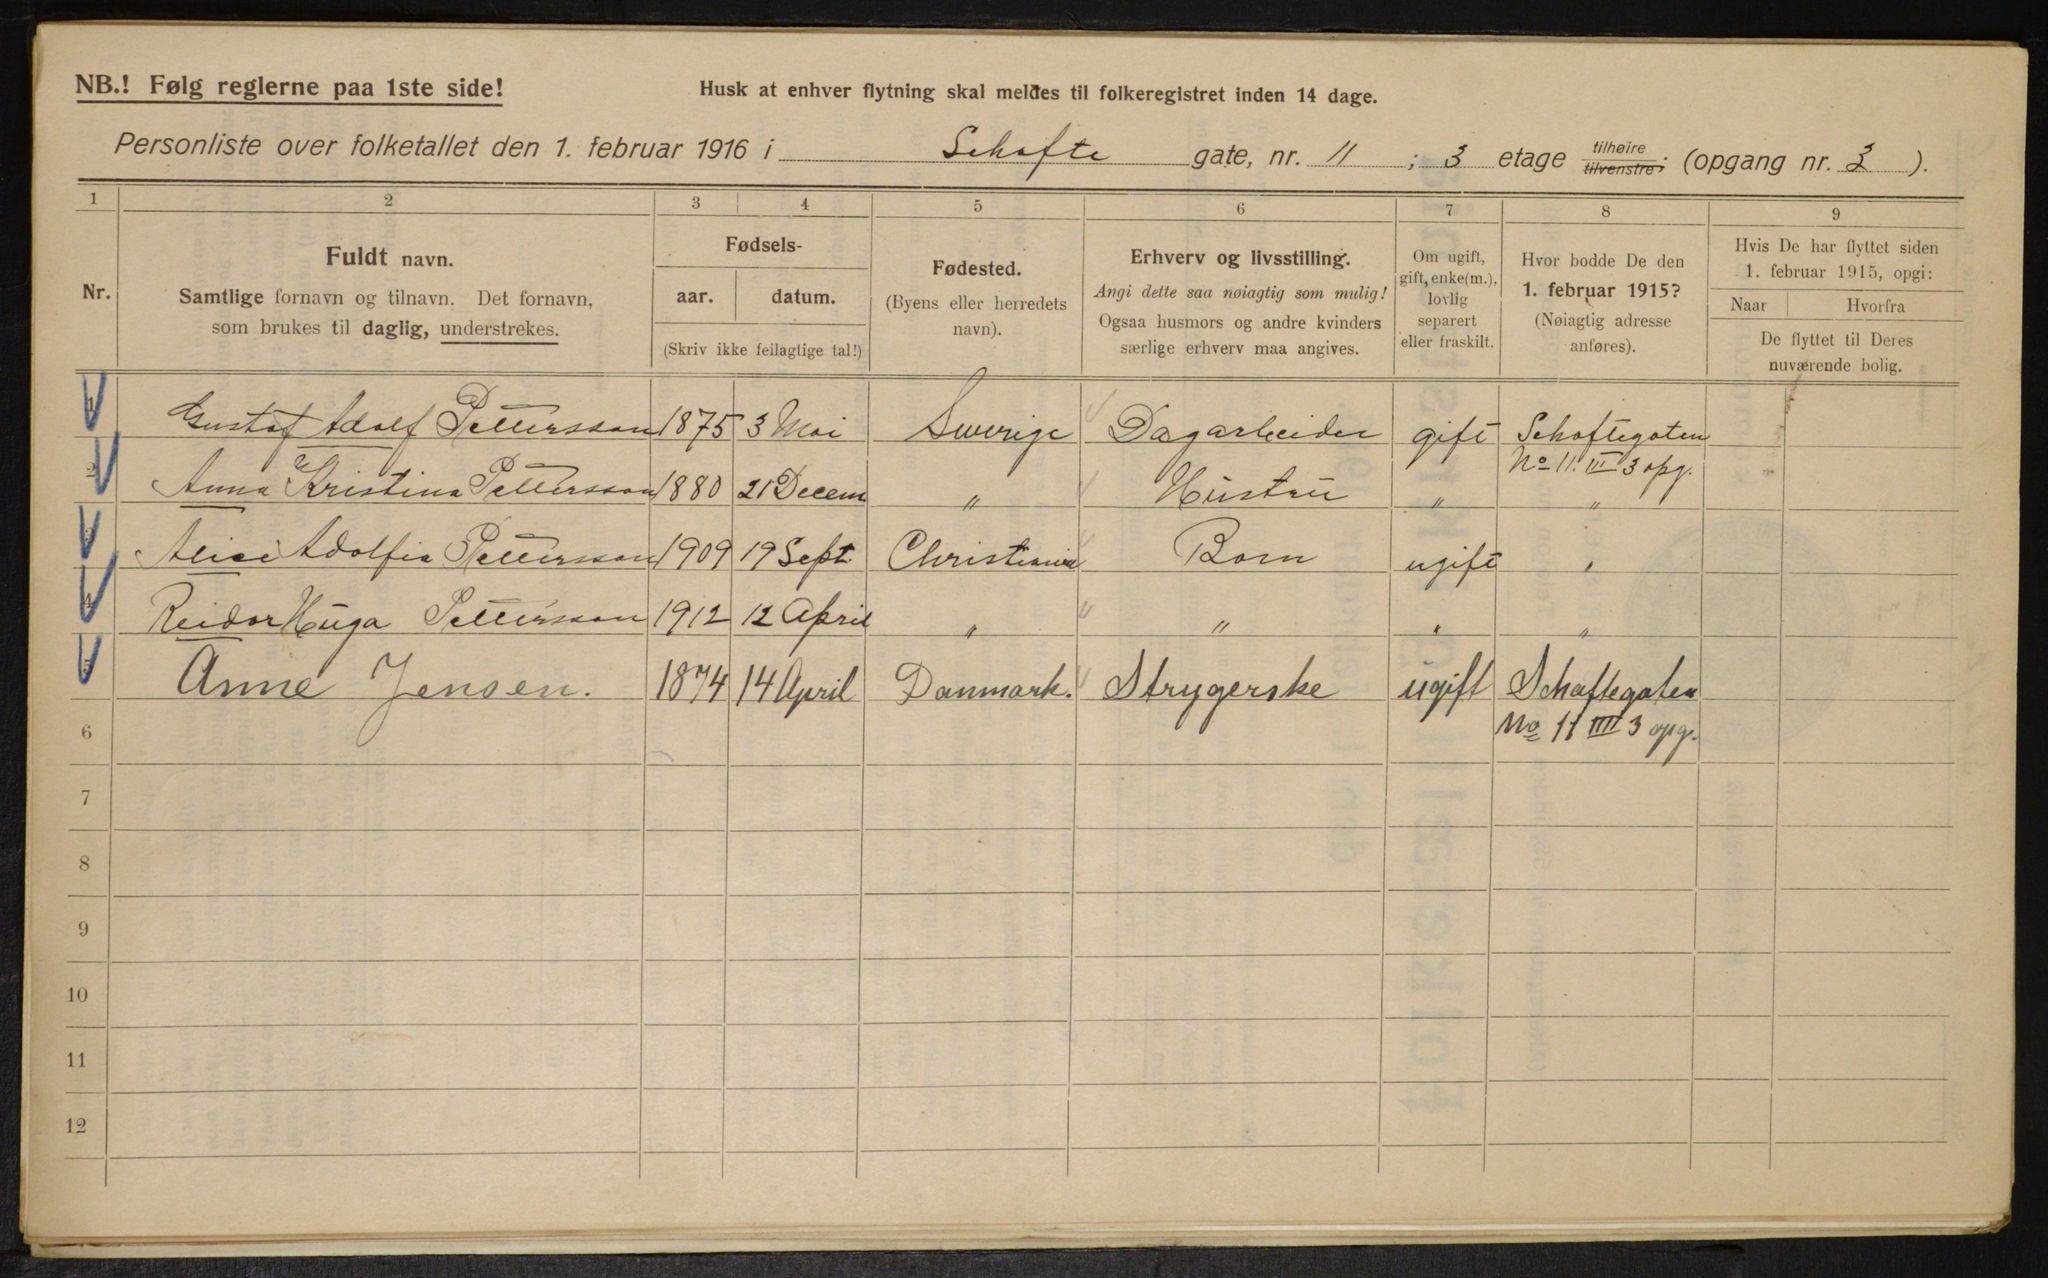 NB.! Følg reglerne paa 1ste side!
Husk at enhver flytning skal meldes til folkeregistret inden 14 dage.
Personliste over folketallet den 1. februar 1916 i Schøfte gate, nr. 11 ; 3 etage tilhøire tilvenstre; (opgang nr. 3 ).
1 2 3 4 5 6 7 8 9
Nr.
Fuldt navn.
Samtlige fornavn og tilnavn. Det fornavn,
som brukes til daglig, understrekes.
Fødsels-
aar. datum.
(Skriv ikke feilagtige tal!)
Fødested.
(Byens eller herredets
navn).
Erhverv og livsstilling.
Angi dette saa nøiagtig som mulig!
Ogsaa husmors og andre kvinders
særlige erhverv maa angives.
Om ugift,
gift, enke(m.),
lovlig
separert
eller fraskilt.
Hvor bodde De den
1. februar 1915?
(Nøiagtig adresse
anføres).
Hvis De har flyttet siden
1. februar 1915, opgi:
Naar Hvorfra
De flyttet til Deres
nuværende bolig.
1 Gustaf Adolf Pettersson 1875 3 Mai Sverige Dagarbeider gift Schøftegaten
No 11. III 3 opg.
2 Anna Kristina Pettersson 1880 21 Decem " Hustru " "
3 Alice Adolfia Pettersson 1909 19 Sept. Christiania Barn ugift "
4 Reidar Huga Pettersson 1912 12 April " " " "
5 Anne Jensen. 1874 14 April Danmark. Strygerske ugift Schøftegaten
No 11 III 3 opg.
6
7
8
9
10
11
12